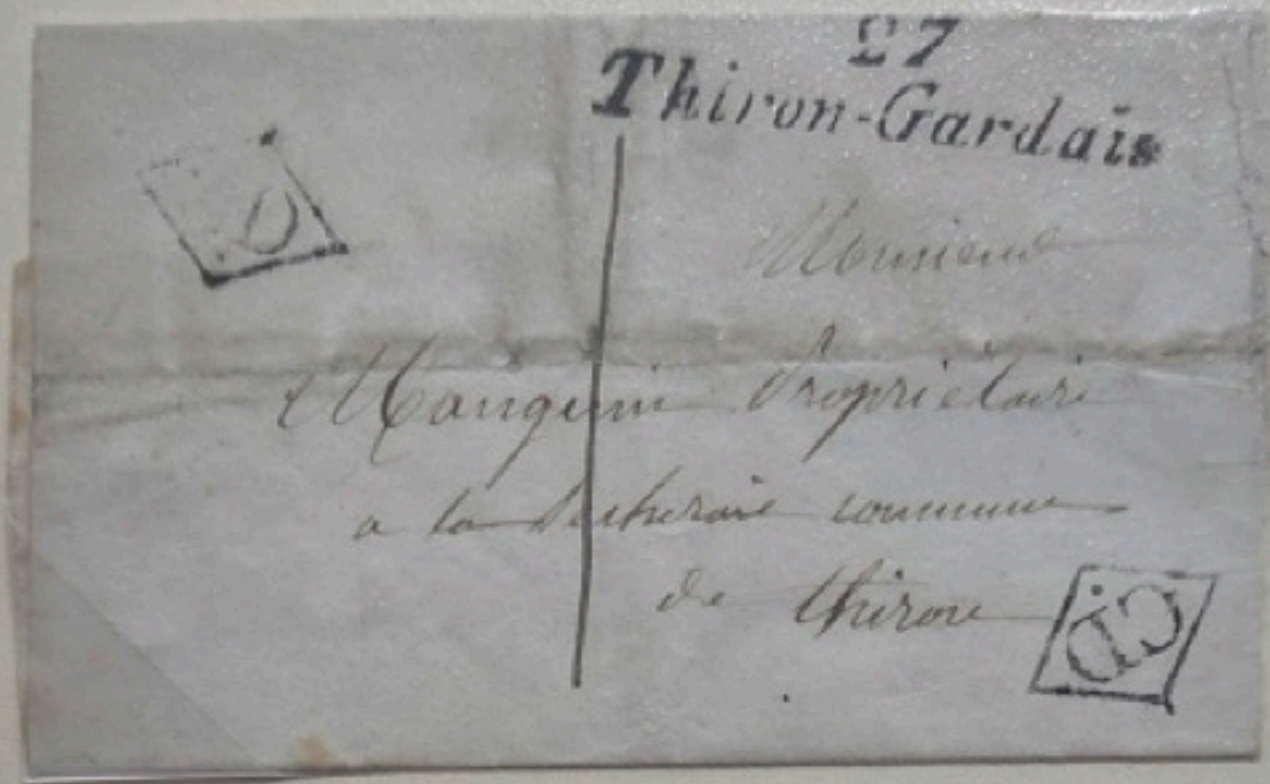 27
Thiron-Gardais
Monsieur
Manguin Propriétaire
a la commune
de thiron